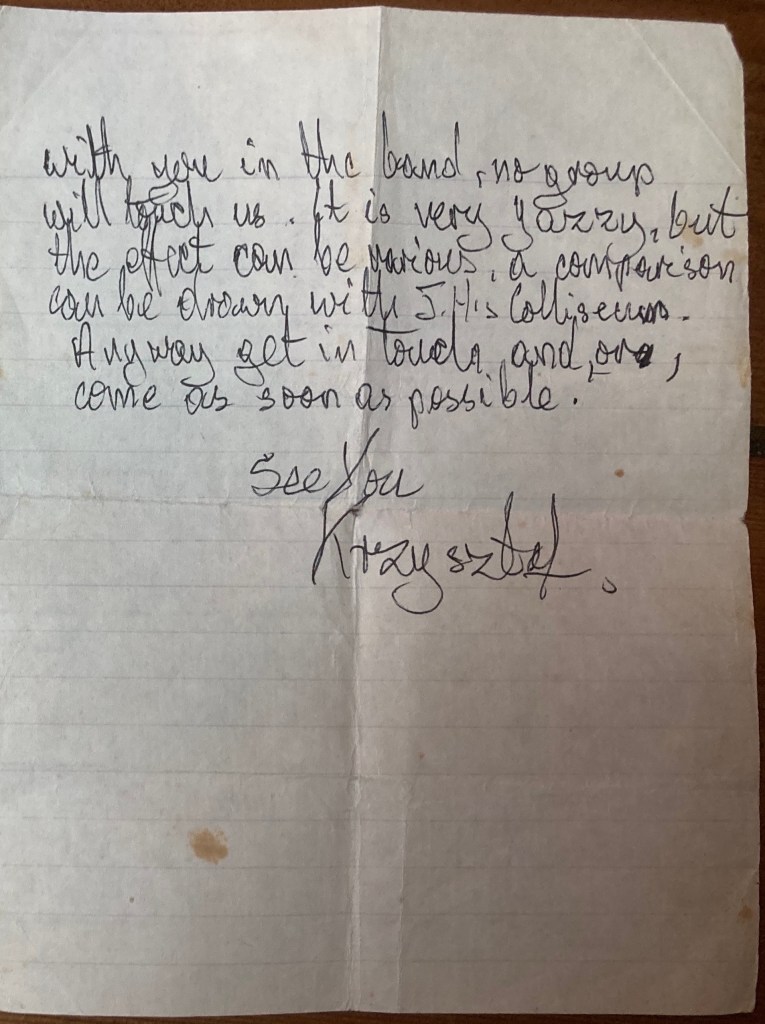 with you in the band, no group
will touch us. It is very yazzy, but
the effect can be various, a comparison
can be drawn with J.H's Colliseum.
Anyway get in Touch, and, or,
come as soon as possible.
See You
Krzysztof.